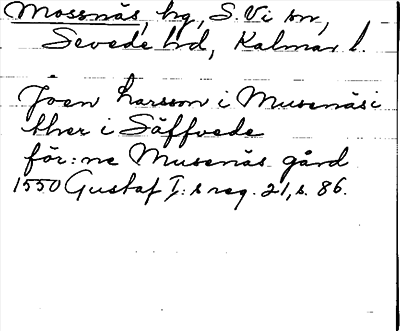 Mossnäs, hg, S. Vi sn,
Sevede hd, Kalmar l.
Joen Larsson i Musenäs i
ther i Säffvede
för:ne Musenäs gård
1550 Gustaf I:s reg. 21, s. 86.